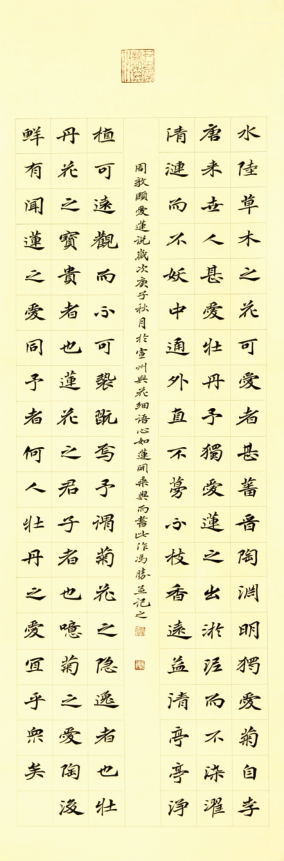 水陸草木之花可愛者甚蕃晋陶淵明獨愛菊自李
唐来世人甚愛牡丹予獨愛蓮之出淤泥而不染濯
清漣而不妖中通外直不蔓不枝香遠益清亭亭淨
周敦頤愛蓮説歲次庚子秋月於宣州與花細語心如蓮開乘興而書此作馮勝并記之
植可遠觀而不可褻翫焉予謂菊花之隐逸者也牡
丹花之寶貴者也蓮花之君子者也噫菊之愛陶後
鮮有聞蓮之愛同予者何人牡丹之愛宜乎衆矣